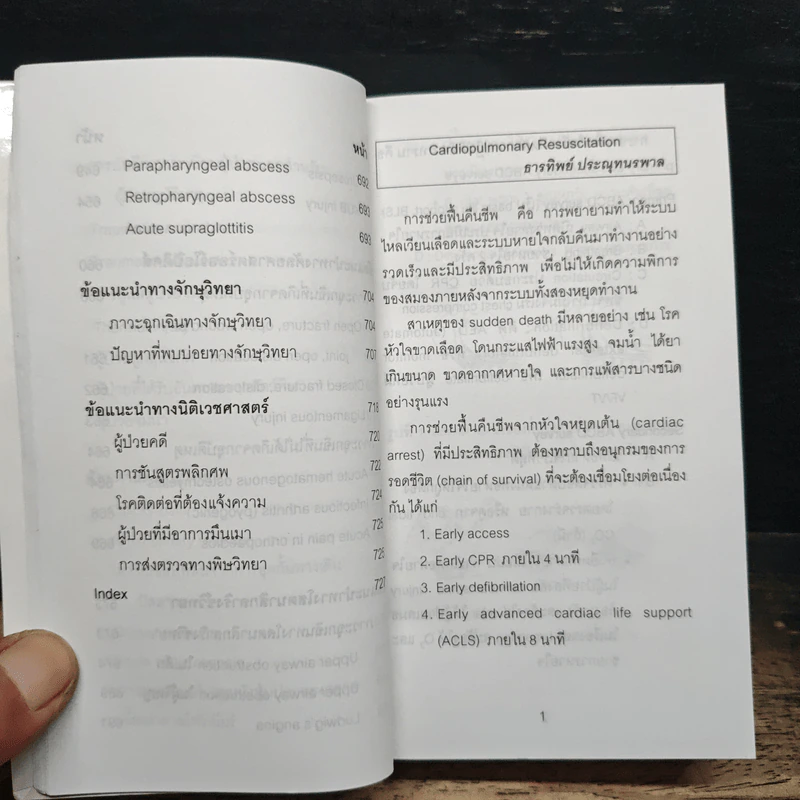 หน้า
Parapharyngeal abscess 692
Retropharyngeal abscess 693
Acute supraglottitis 693
ข้อแนะนำทางจักษุวิทยา 704
ภาวะฉุกเฉินทางจักษุวิทยา 704
ปัญหาที่พบบ่อยทางจักษุวิทยา 707
ข้อแนะนำทางนิติเวชศาสตร์ 718
ผู้ป่วยคดี 720
การชันสูตรพลิกศพ 722
โรคติดต่อที่ต้องแจ้งความ 724
ผู้ป่วยที่มีอาการมึนเมา 725
การส่งตรวจทางพิษวิทยา 726
Index 727
Cardiopulmonary Resuscitation
ธารทิพย์ ประณุทนรพาล
การช่วยฟื้นคืนชีพ คือ การพยายามทำให้ระบบ
ไหลเวียนเลือดและระบบหายใจกลับคืนมาทำงานอย่าง
รวดเร็วและมีประสิทธิภาพ เพื่อไม่ให้เกิดความพิการ
ของสมองภายหลังจากระบบทั้งสองหยุดทำงาน
สาเหตุของ sudden death มีหลายอย่าง เช่น โรค
หัวใจขาดเลือด โดนกระแสไฟฟ้าแรงสูง จมน้ำ ได้ยา
เกินขนาด ขาดอากาศหายใจ และการแพ้สารบางชนิด
อย่างรุนแรง
การช่วยฟื้นคืนชีพจากหัวใจหยุดเต้น (cardiac
arrest) ที่มีประสิทธิภาพ ต้องทราบถึงอนุกรมของการ
รอดชีวิต (chain of survival) ที่จะต้องเชื่อมโยงต่อเนื่อง
กัน ได้แก่
1. Early access
2. Early CPR ภายใน 4 นาที
3. Early defibrillation
4. Early advanced cardiac life support
(ACLS) ภายใน 8 นาที
1